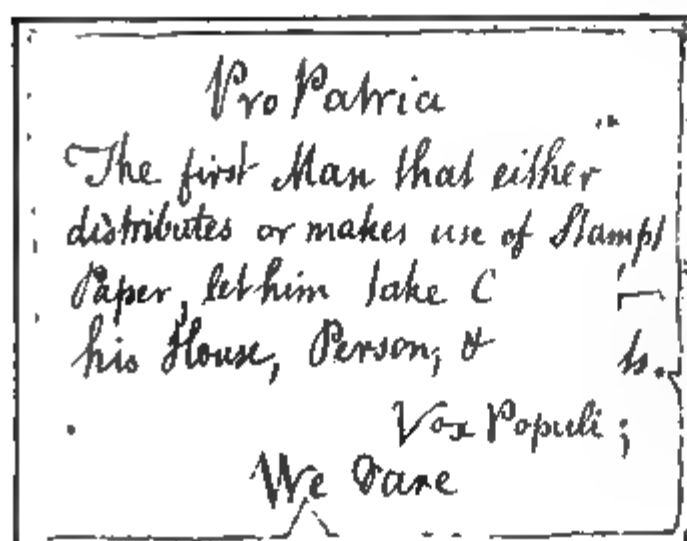 Pro Patria
The first Man that either
distributes or makes use of Stampt
Paper, let him take C
his House, Person, &
Vox Populi;
We Dare